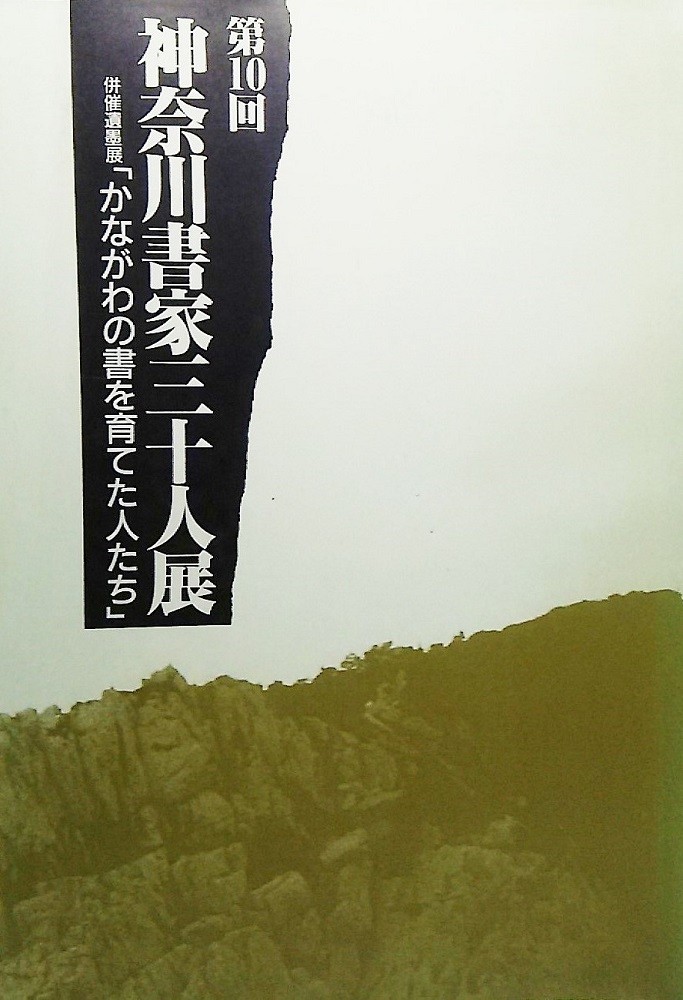 第10回
神奈川書家三十人展
併催遺墨展「かながわの書を育てた人たち」